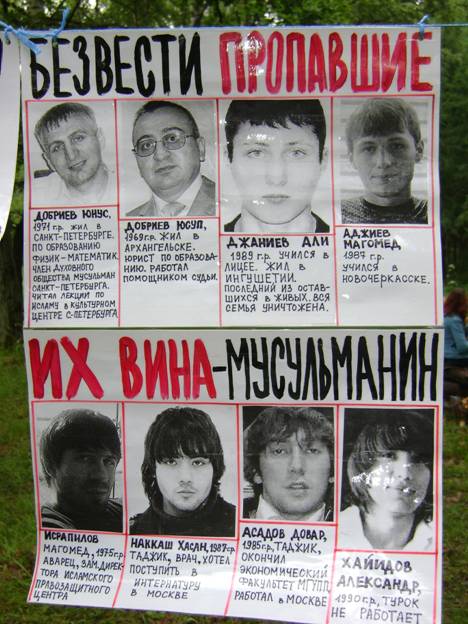 БЕЗВЕСТИ ПРОПАВШИЕ
ДОБРИЕВ ЮНУС,
1971 г.р. ЖИЛ В
САНКТ-ПЕТЕРБУРГЕ.
ПО ОБРАЗОВАНИЮ
ФИЗИК-МАТЕМАТИК.
ЧЛЕН ДУХОВНОГО
ОБЩЕСТВА МУСУЛЬМАН
САНКТ-ПЕТЕРБУРГА.
ЧИТАЛ ЛЕКЦИИ ПО
ИСЛАМУ В КУЛЬТУРНОМ
ЦЕНТРЕ С-ПЕТЕРБУРГА
ДОБРИЕВ ЮСУП,
1969г.р. ЖИЛ В
АРХАНГЕЛЬСКЕ.
ЮРИСТ ПО ОБРАЗОВА-
НИЮ. РАБОТАЛ
ПОМОЩНИКОМ СУДЬИ.
ДЖАНИЕВ АЛИ
1989 г.р. УЧИЛСЯ В
ЛИЦЕЕ. ЖИЛ В
ИНГУШЕТИИ.
ПОСЛЕДНИЙ ИЗ ОСТАВ-
ШИХСЯ В ЖИВЫХ. ВСЯ
СЕМЬЯ УНИЧТОЖЕНА.
АДЖИЕВ
МАГОМЕД,
1987 г.р.
УЧИЛСЯ В
НОВОЧЕРКАССКЕ.
ИХ ВИНА-МУСУЛЬМАНИН
ИСРАПИЛОВ
МАГОМЕД, 1975г.р.
АВАРЕЦ, ЗАМ.ДИРЕК-
ТОРА ИСЛАМСКОГО
ПРАВОЗАЩИТНОГО
ЦЕНТРА
НАККАШ ХАСАН, 1987г.р
ТАДЖИК, ВРАЧ, ХОТЕЛ
ПОСТУПИТЬ В
ИНТЕРНАТУРУ
В МОСКВЕ
АСАДОВ ДОВАР,
1985г.р, ТАДЖИК,
ОКОНЧИЛ
ЭКОНОМИЧЕСКИЙ
ФАКУЛЬТЕТ МГУПП,
РАБОТАЛ В МОСКВЕ
ХАЙИДОВ
АЛЕКСАНДР,
1990г.р, ТУРОК
НЕ РАБОТАЕТ